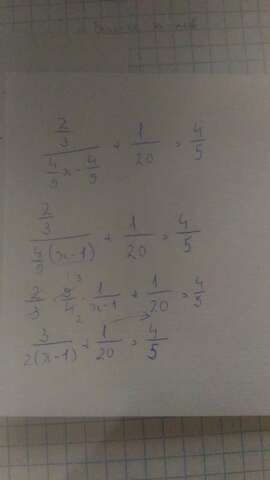 \frac{\frac{2}{3}}{\frac{4}{9}x-\frac{4}{9}} + \frac{1}{20} = \frac{4}{5}
\frac{\frac{2}{3}}{\frac{4}{9}(x-1)} + \frac{1}{20} = \frac{4}{5}
\frac{2}{3} \cdot \frac{9}{4} \cdot \frac{1}{x-1} + \frac{1}{20} = \frac{4}{5}
\frac{3}{2(x-1)} + \frac{1}{20} = \frac{4}{5}